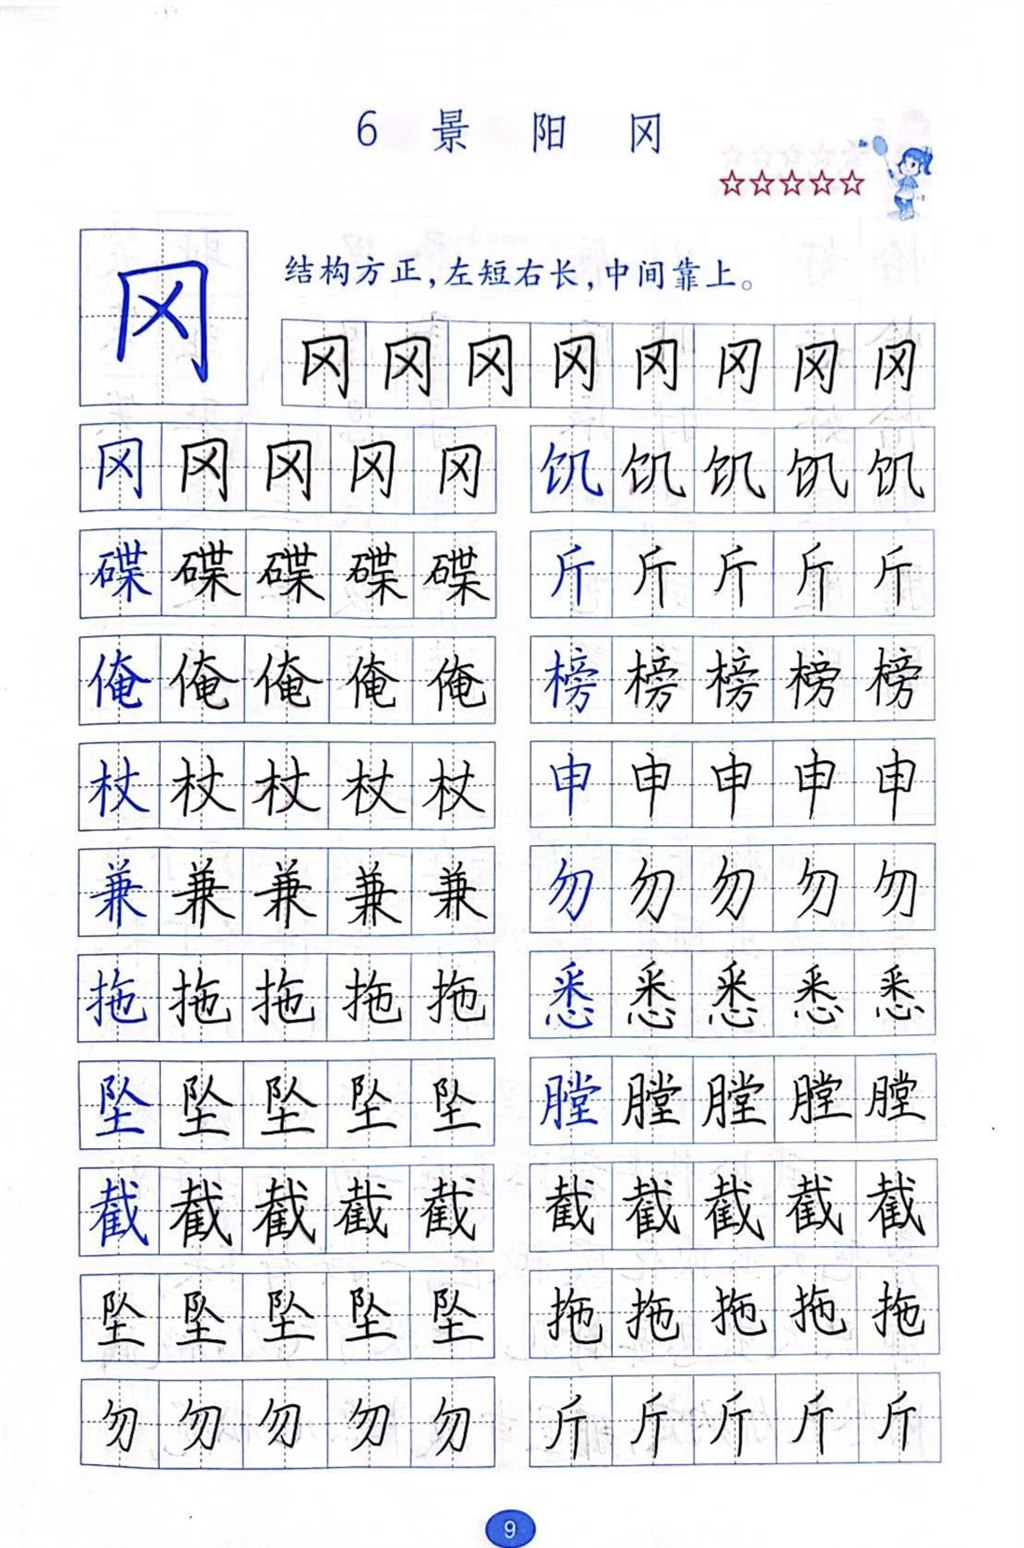 6 景 阳 冈
冈 结构方正，左短右长，中间靠上。
冈 冈 冈 冈 冈 冈 冈 冈
冈 冈 冈 冈 冈 饥 饥 饥 饥 饥
碟 碟 碟 碟 碟 斤 斤 斤 斤 斤
俺 俺 俺 俺 俺 榜 榜 榜 榜 榜
杖 杖 杖 杖 杖 申 申 申 申 申
兼 兼 兼 兼 兼 勿 勿 勿 勿 勿
拖 拖 拖 拖 拖 悉 悉 悉 悉 悉
坠 坠 坠 坠 坠 膛 膛 膛 膛 膛
截 截 截 截 截 截 截 截 截 截
坠 坠 坠 坠 坠 拖 拖 拖 拖 拖
勿 勿 勿 勿 勿 斤 斤 斤 斤 斤
9